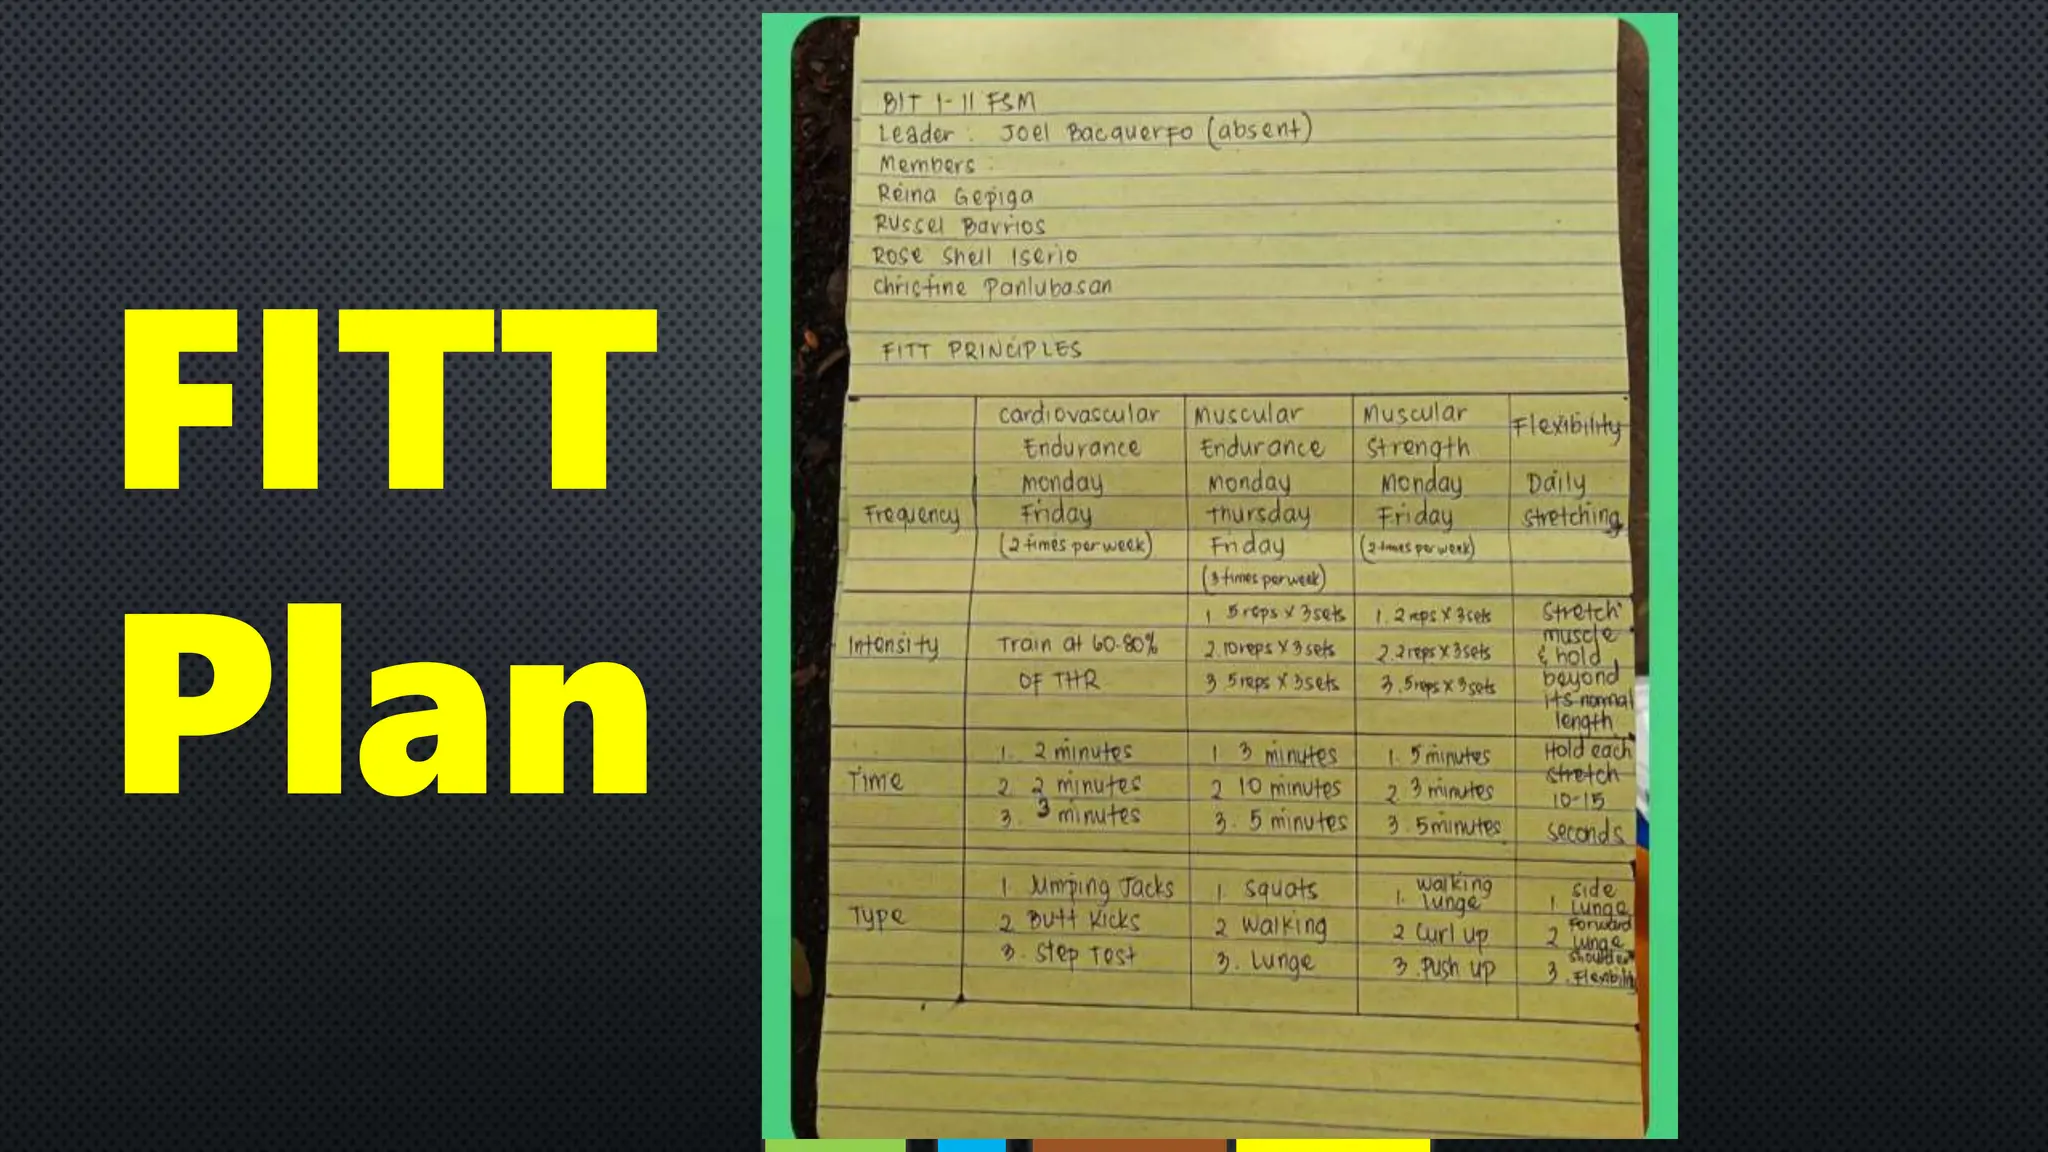 FITT
Plan
BIT 1-11 FSM
Leader: Joel Bacquerfo (absent)
Members:
Reina Gepiga
Russel Barrios
Rose Shell Iserio
Christine Panlubasan
FITT PRINCIPLES
Cardiovascular Endurance
Muscular Endurance
Muscular Strength
Flexibility
Frequency
Monday
Friday
(2 times per week)
Monday
Thursday
Friday
(3 times per week)
Monday
Friday
(2 times per week)
Daily
stretching
Intensity
Train at 60-80%
OF THR
1. 5 reps x 3 sets
2. 10 reps x 3 sets
3 5 reps x 3 sets
1. 2 reps x 3 sets
2. 2 reps x 3 sets
3. 5 reps x 3 sets
Stretch
muscle
& hold
beyond
its normal
length
Time
1. 2 minutes
2 2 minutes
3. 3 minutes
1 3 minutes
2 10 minutes
3. 5 minutes
1. 5 minutes
2 3 minutes
3. 5 minutes
Hold each
stretch
10-15
seconds
Type
1. Jumping Jacks
2. Butt Kicks
3. Step Test
1. Squats
2 Walking
3. Lunge
1. walking lunge
2 Curl up
3. Push up
1 side lunge
2 Forward lunge
3. shoulder Flexibility